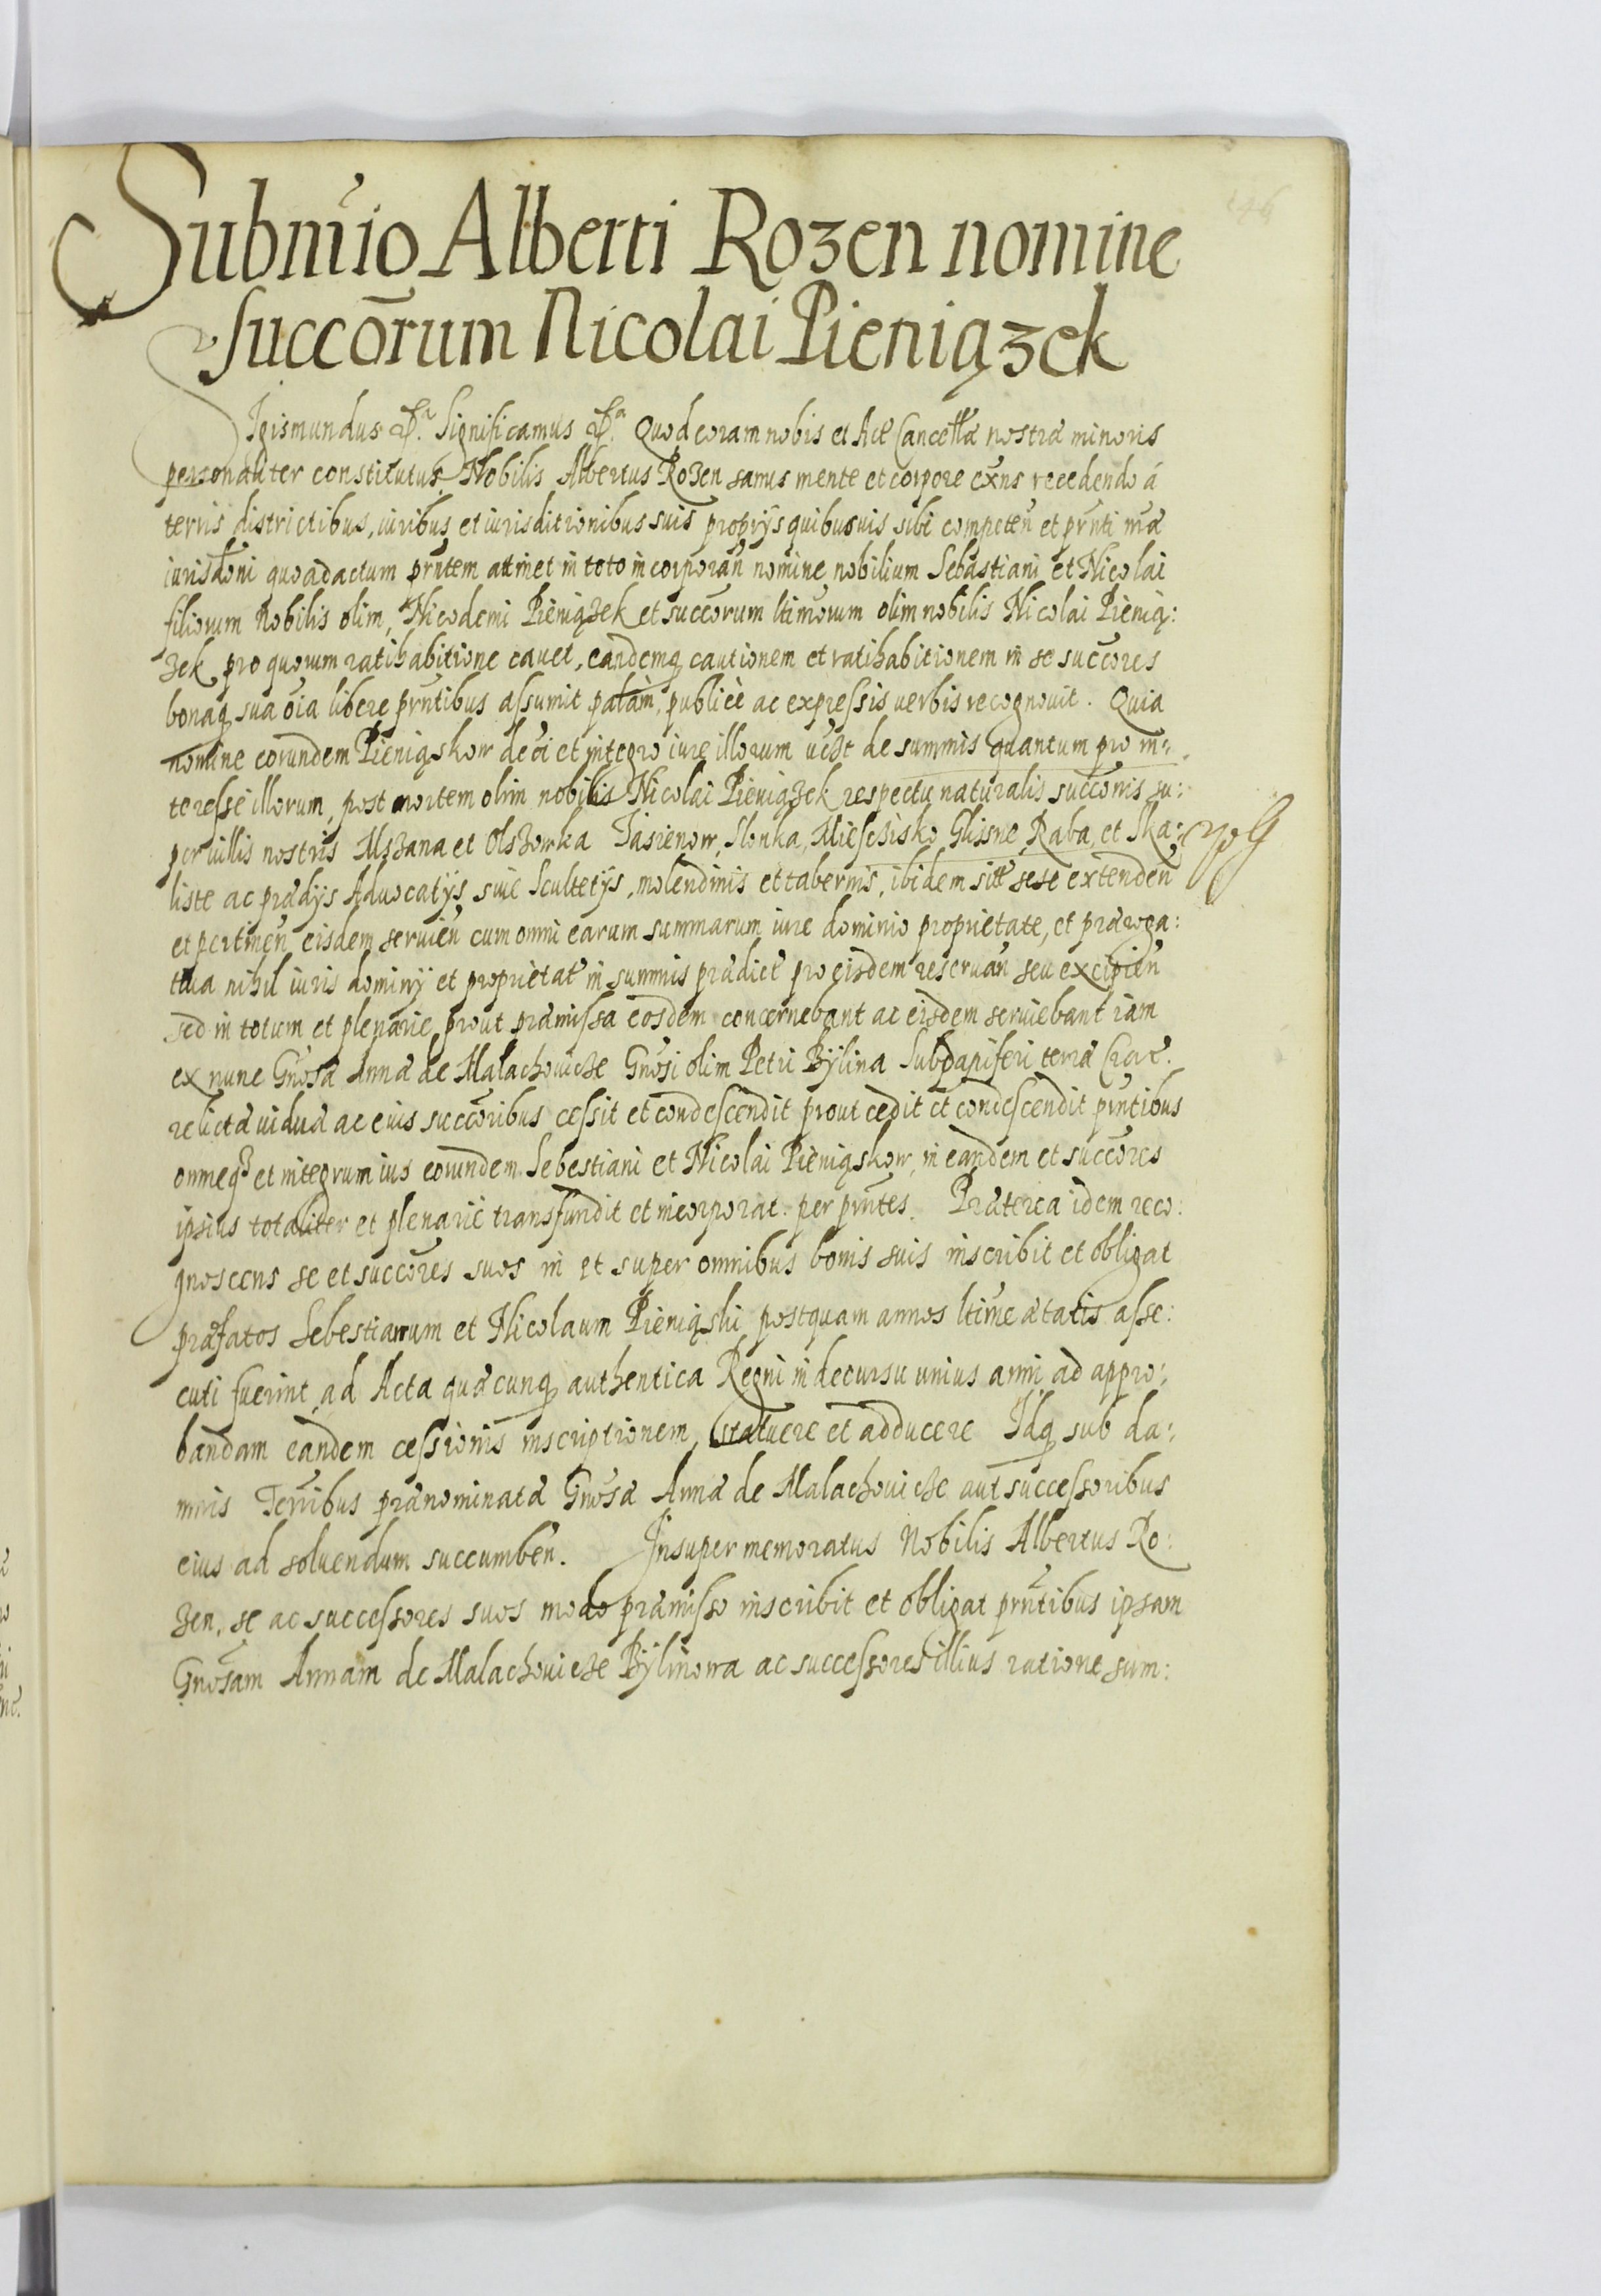 Submĩo Alberti Rozen nomine
succorũm Nicolai Pieniązek
Sigismundus &ᵃ. Significamus &ᵃ. Quod coram nobis et Act Cancellæ nostræ minoris
personaliter constitutus Nobilis Albertus Rozen sanus mente et corpore exñs recedendo á
terris districtibus, iuribus et iurisditionibus suis proprijs quibusuis sibi competeñ et prñti nræ
iurisdõni quo ad actum prñtem attinet in toto incorporañ nomine nobilium Sebastiani et Nicolai
filiorum Nobilis olim Nicodemi Pieniązek et succõrum ltimorum olim nobilis Nicolai Pienią:
zek pro quorum ratihabitione cauet, eandemq cautionem et ratihabitionem in se succõres
bonaq sua õia libere prñtibus assumit palàm, publicè ac expressis verbis recognouit. Quia
nomine eorundem Pieniąskow de õi et integro iure illorum vĕst de summis quantum pro in:
teresse illorum, post mortem olim nobilis Nicolai Pieniązek respectu naturalis succõnis su:
per villis nostris Mszana et Olszowka Jasienow, Slonka, Miesczisko Glisne, Raba, et Ska:
liste ac prædijs Aduocatijs, siue Scultetijs, molendinis et tabernis, ibidem sitt sese extendeñ
et pertineñ eisdem seruieñ cum omni earum summarum iure dominio proprietate, et præroga:
tiua nihil iuris dominij et proprietat in summis prædict pro eisdem reseruañ seu excipieñ
sed in totum et plenarie, prout præmissa eosdem concernebant ac eisdem seruiebant iam
ex nunc Gnõsæ Annæ de Malachowicze Gnõsi olim Petri Bÿlina Subdapiferi terræ Crac.
relictæ viduæ ac eius succõribus cessit et condescendit prout cedit et condescendit prñtibus
omneq et integrum ius eorundem Sebestiani et Nicolai Pieniąskow, in eandem et succõres
ipsius totaliter et plenariè transfundit et incorporat per prñtes. Præterea idem reco:
gnoscens se et succõres suos in et super omnibus bonis suis inscribit et obligat
præfatos Sebestianum et Nicolaum Pieniąski postquam annos ltimæ ætatis asse:
cuti fuerint, ad Acta quæcunq authentica Regni in decursu unius anni ad appro:
bandam eandem cessionis inscriptionem, statuere et adducere Idq sub da:
mnis Terribus prænominatæ Gnõsæ Annæ de Malachouicze aut successoribus
eius ad soluendum succumbeñ. Insuper memoratus Nobilis Albertus Ro:
zen, se ac successores suos modo præmisso inscribit et obligat prñtibus ipsam
Gnosam Annam de Malachouicze Bÿlinowa ac successores illius ratione sum: